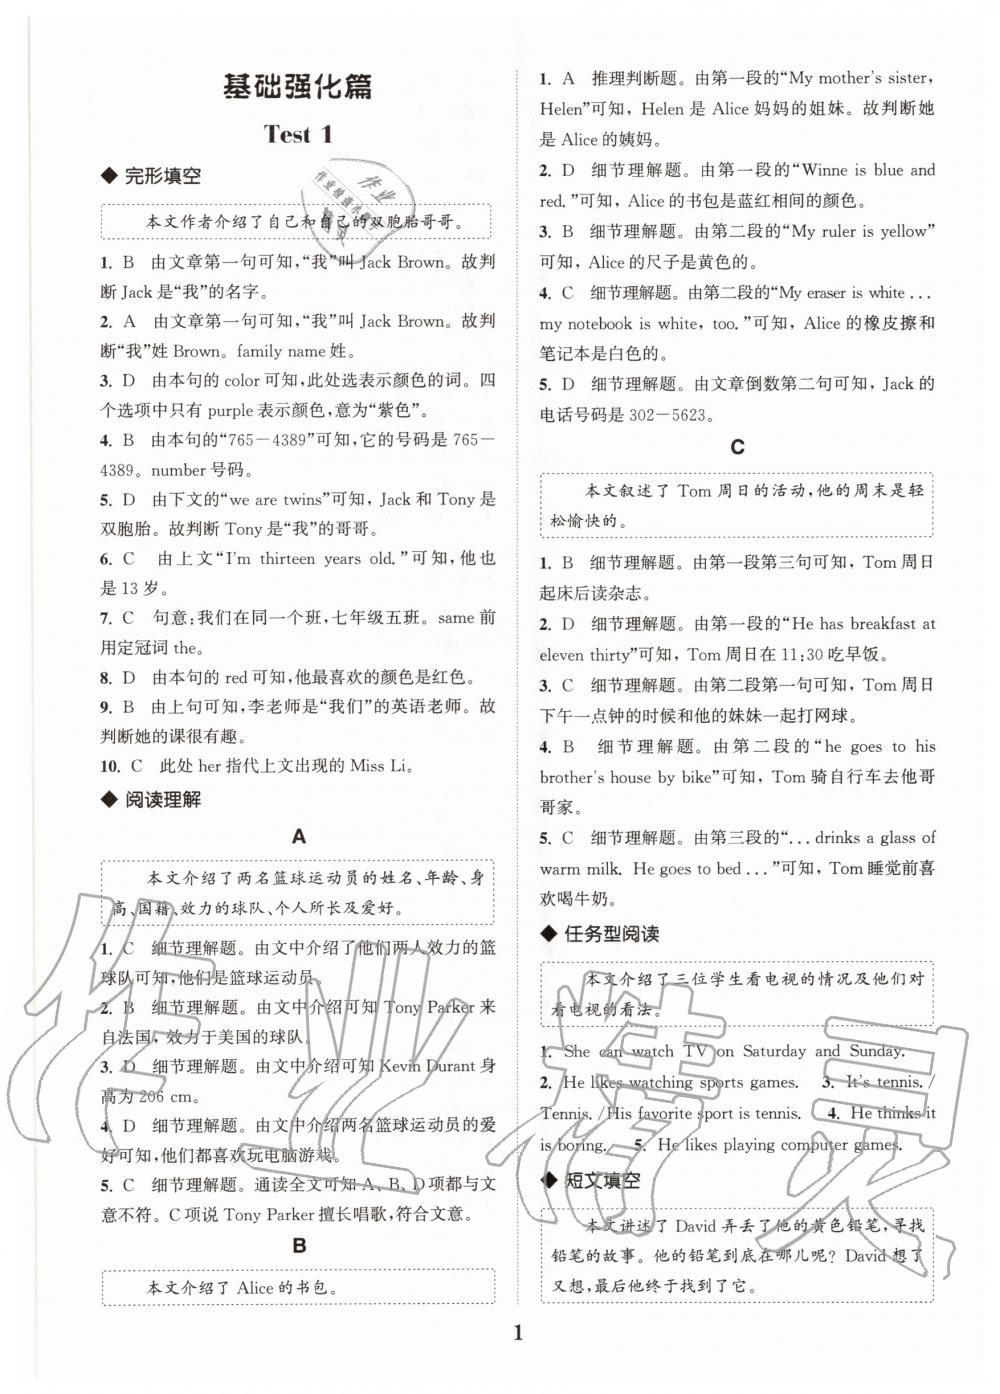 基础强化篇
Test 1
◆ 完形填空
本文作者介绍了自己和自己的双胞胎哥哥。
1. B 由文章第一句可知,“我”叫 Jack Brown。故判
断 Jack 是“我”的名字。
2. A 由文章第一句可知,“我”叫 Jack Brown。故判
断“我”姓 Brown。family name 姓。
3. D 由本句的 color 可知,此处选表示颜色的词。四
个选项中只有 purple 表示颜色,意为“紫色”。
4. B 由本句的“765－4389”可知,它的号码是 765－
4389。number 号码。
5. D 由下文的“we are twins”可知, Jack 和 Tony 是
双胞胎。故判断 Tony 是“我”的哥哥。
6. C 由上文“I'm thirteen years old.”可知,他也
是 13 岁。
7. C 句意:我们在同一个班,七年级五班。same 前
用定冠词 the。
8. D 由本句的 red 可知,他最喜欢的颜色是红色。
9. B 由上句可知,李老师是“我们”的英语老师。故
判断她的课很有趣。
10. C 此处 her 指代上文出现的 Miss Li。
◆ 阅读理解
A
本文介绍了两名篮球运动员的姓名、年龄、身
高、国籍、效力的球队、个人所长及爱好。
1. C 细节理解题。由文中介绍了他们两人效力的篮
球队可知,他们是篮球运动员。
2. B 细节理解题。由文中介绍可知 Tony Parker 来
自法国,效力于美国的球队。
3. D 细节理解题。由文中介绍可知 Kevin Durant 身
高为 206 cm。
4. D 细节理解题。由文中介绍两名篮球运动员的爱
好可知,他们都喜欢玩电脑游戏。
5. C 细节理解题。通读全文可知 A、B、D 项都与文
意不符。C 项说 Tony Parker 擅长唱歌,符合文意。
B
本文介绍了 Alice 的书包。
1. A 推理判断题。由第一段的“My mother's sister,
Helen”可知, Helen 是 Alice 妈妈的姐妹。故判断她
是 Alice 的姨妈。
2. D 细节理解题。由第一段的“Winne is blue and
red.”可知, Alice 的书包是蓝红相间的颜色。
3. B 细节理解题。由第二段的“My ruler is yellow”
可知, Alice 的尺子是黄色的。
4. C 细节理解题。由第二段的“My eraser is white ...
my notebook is white, too.”可知, Alice 的橡皮擦和
笔记本是白色的。
5. D 细节理解题。由文章倒数第二句可知, Jack 的
电话号码是 302-5623。
C
本文叙述了 Tom 周日的活动,他的周末是轻
松愉快的。
1. B 细节理解题。由第一段第三句可知, Tom 周日
起床后读杂志。
2. D 细节理解题。由第一段的“He has breakfast at
eleven thirty”可知, Tom 周日在 11:30 吃早饭。
3. C 细节理解题。由第二段第一句可知, Tom 周日
下午一点钟的时候和他的妹妹一起打网球。
4. B 细节理解题。由第二段的“he goes to his
brother's house by bike”可知, Tom 骑自行车去他哥
哥家。
5. C 细节理解题。由第三段的“... drinks a glass of
warm milk. He goes to bed ...”可知, Tom 睡觉前喜
欢喝牛奶。
◆ 任务型阅读
本文介绍了三位学生看电视的情况及他们对
看电视的看法。
1. She can watch TV on Saturday and Sunday.
2. He likes watching sports games. 3. It's tennis. /
Tennis. /His favorite sport is tennis. 4. He thinks it
is boring. 5. He likes playing computer games.
◆ 短文填空
本文讲述了 David 弄丢了他的黄色铅笔,寻找
铅笔的故事。他的铅笔到底在哪儿呢? David 想了
又想,最后他终于找到了它。
1
作业精灵